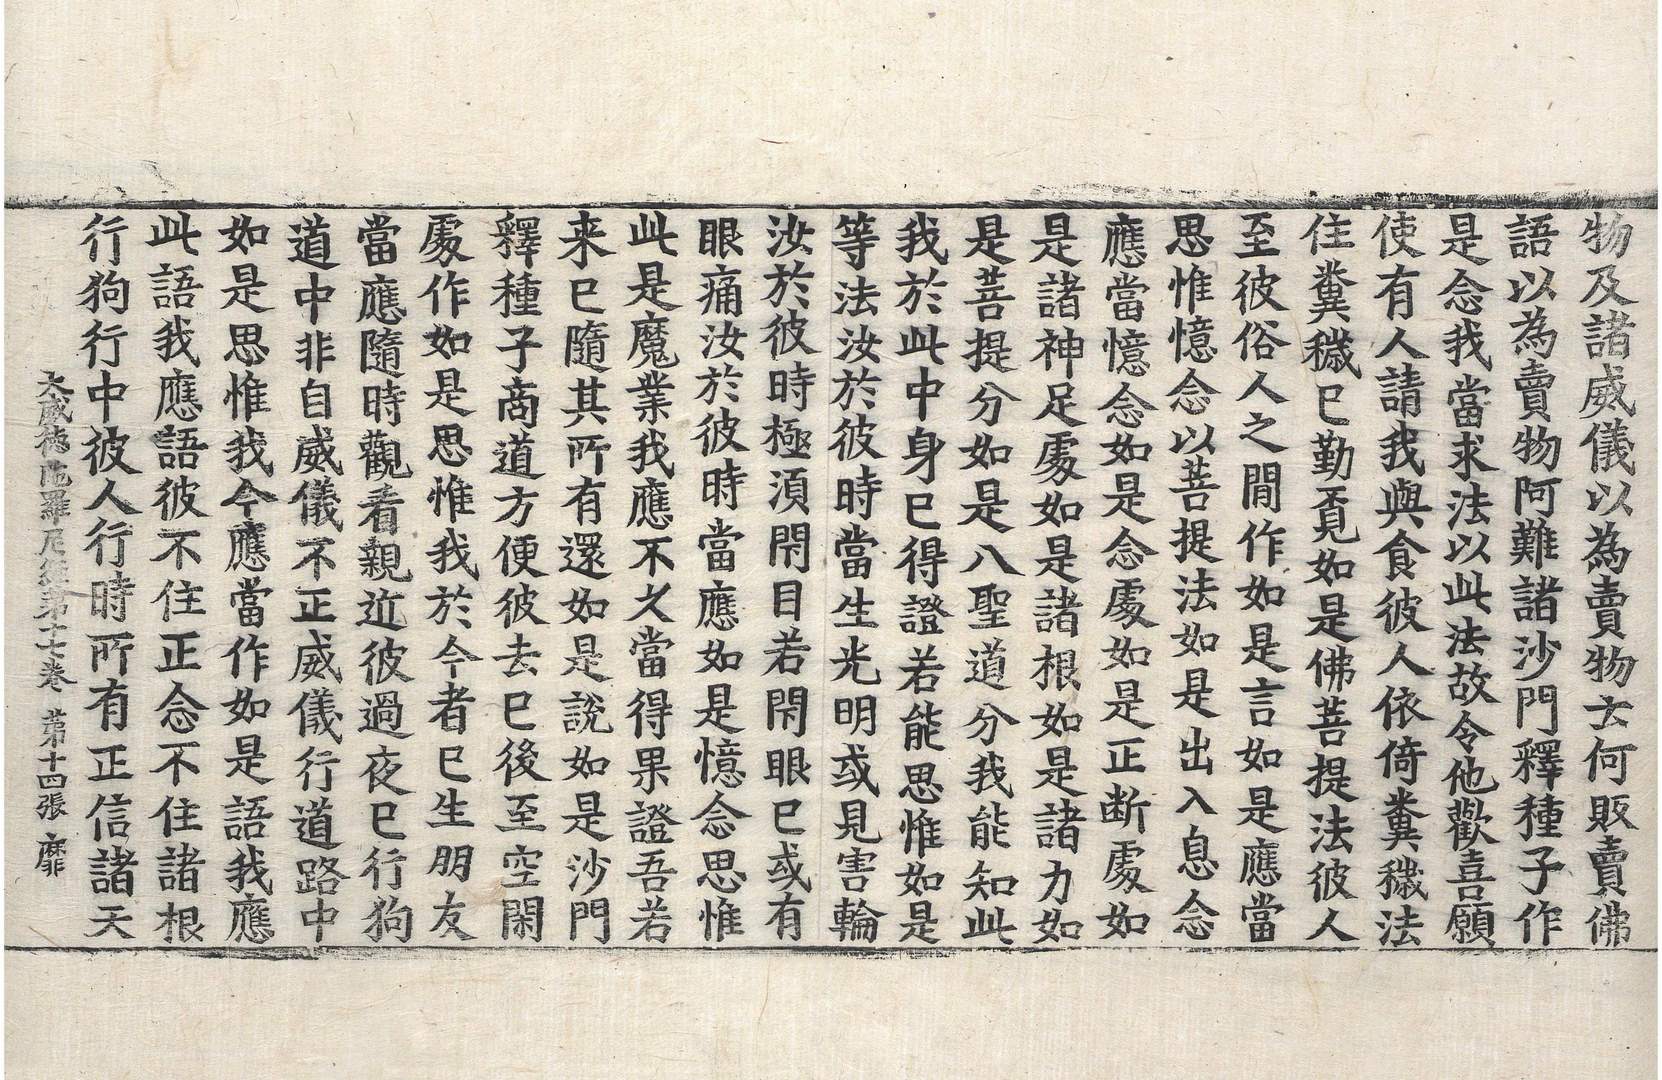 物及諸威儀以為賣物云何販賣佛
語以為賣物阿難諸沙門釋種子作
是念我當求法以此法故令他歡喜願
使有人請我與食彼人依倚糞穢法
住糞穢已勤覓如是佛菩提法彼人
至彼俗人之間作如是言如是應當
思惟憶念以菩提法如是出入息念
應當憶念如是念處如是正断處如
是諸神足處如是諸根如是諸力如
是菩提分如是八聖道分我能知此
我於此中身已得證若能思惟如是
等法汝於彼時當生光明或見害輪
汝於彼時極須閉目若閉眼已或有
眼痛汝於彼時當應如是憶念思惟
此是魔業我應不久當得果證吾若
来已隨其所有還如是說如是沙門
釋種子商道方便彼去已後至空閑
處作如是思惟我於今者已生朋友
當應隨時觀看親近彼過夜已行狗
道中非自威儀不正威儀行道路中
如是思惟我今應當作如是語我應
此語我應語彼不住正念不住諸根
行狗行中彼人行時所有正信諸天
大威德陁羅尼經第十七卷 第十四張 靡